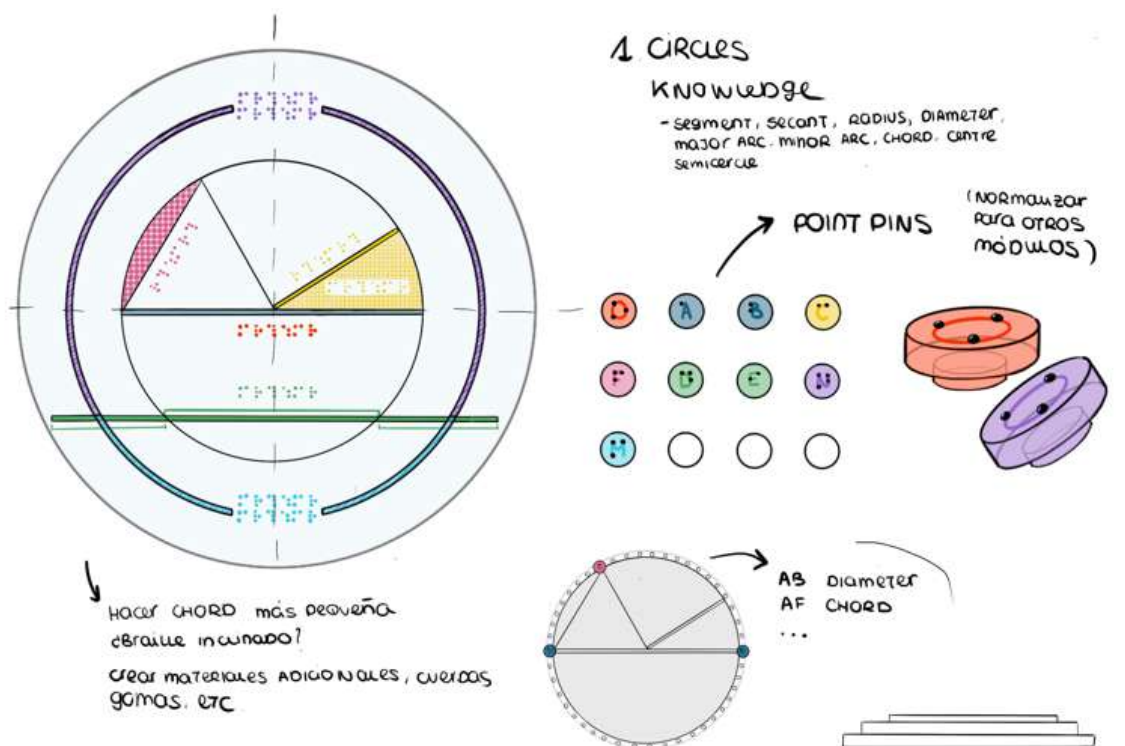 1. CIRCLES
KNOWLEDGE
- SEGMENT, SECANT, RADIUS, DIAMETER,
MAJOR ARC. MINOR ARC. CHORD. CENTRE
SEMICERCLE
POINT PINS
(NORMALIZAR
PARA OTROS
MÓDULOS)
O A B C
F D E N
M
HACER CHORD MÁS PEQUEÑA
¿BRAILLE INCLINADO?
CREAR MATERIALES ADICIONALES, CUERDAS
GOMAS. ETC
AB DIAMETER
AF CHORD
...